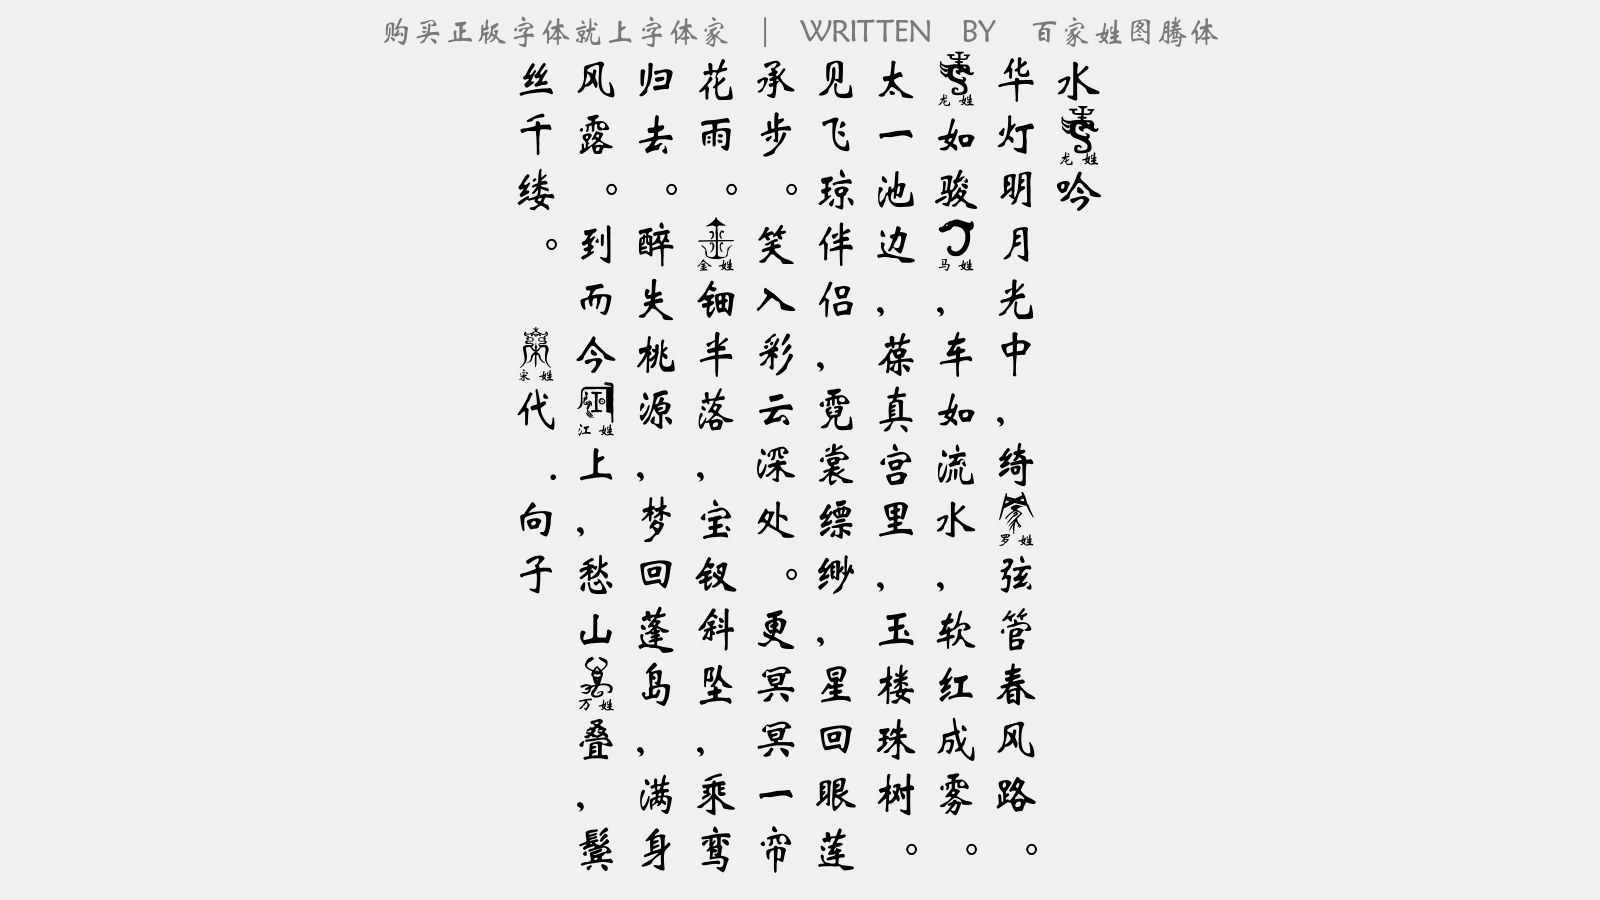 购买正版字体就上字体家 | WRITTEN BY 百家姓图腾体
水龙吟
华灯明月光中，绮罗弦管春风路。
龙如骏马，车如流水，软红成雾。
太一池边，葆真宫里，玉楼珠树。
见飞琼伴侣，霓裳缥缈，星回眼莲
承步。笑入彩云深处。更冥冥一帘
花雨。金钿半落，宝钗斜坠，乘鸾
归去。醉失桃源，梦回蓬岛，满身
风露。到而今江上，愁山万叠，鬓
丝千缕。 宋代．向子